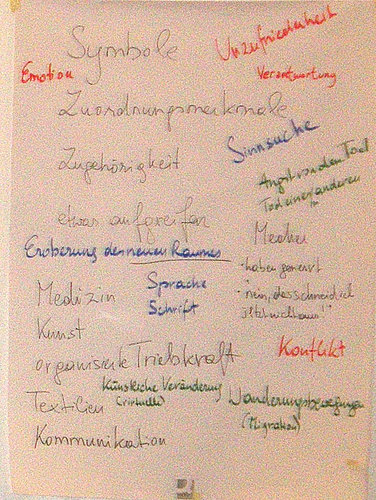 Symbole
Unzufriedenheit
Emotion
Verantwortung
Zuordnungsmerkmale
Sinnsuche
Zugehörigkeit
Angst vor dem Tod
Tod eines anderen
etwas aufgreifen
Medien
Eroberung des neuen Raumes
- haben genervt
Sprache
Schrift
Medizin
- "nein, das schneid ich
jetzt nicht aus!"
Kunst
Konflikt
organisierte Triebkraft
Künstliche Veränderung
(virtuelle)
Wanderungsbewegungen
(Migration)
Textilien
Kommunikation